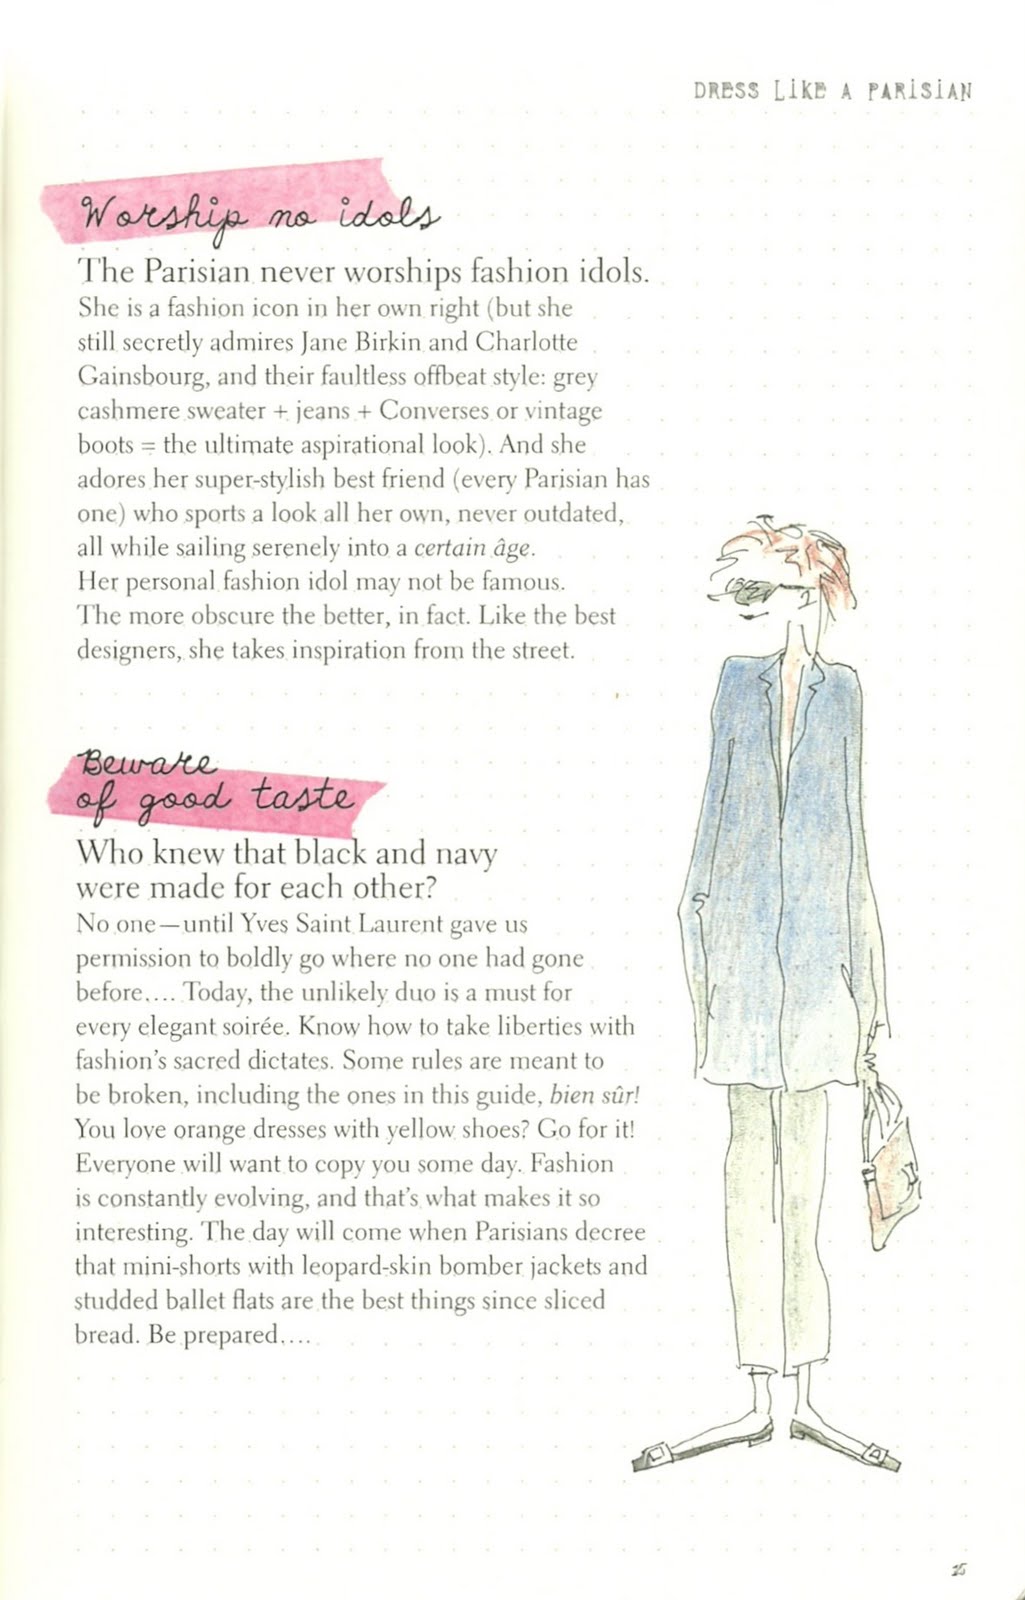 DRESS LIKE A PARISIAN
Worship no idols
The Parisian never worships fashion idols.
She is a fashion icon in her own right (but she
still secretly admires Jane Birkin and Charlotte
Gainsbourg, and their faultless offbeat style: grey
cashmere sweater + jeans + Converses or vintage
boots = the ultimate aspirational look). And she
adores her super-stylish best friend (every Parisian has
one) who sports a look all her own, never outdated,
all while sailing serenely into a certain âge.
Her personal fashion idol may not be famous.
The more obscure the better, in fact. Like the best
designers, she takes inspiration from the street.
Beware
of good taste
Who knew that black and navy
were made for each other?
No one—until Yves Saint Laurent gave us
permission to boldly go where no one had gone
before.... Today, the unlikely duo is a must for
every elegant soirée. Know how to take liberties with
fashion's sacred dictates. Some rules are meant to
be broken, including the ones in this guide, bien sûr!
You love orange dresses with yellow shoes? Go for it!
Everyone will want to copy you some day. Fashion
is constantly evolving, and that's what makes it so
interesting. The day will come when Parisians decree
that mini-shorts with leopard-skin bomber jackets and
studded ballet flats are the best things since sliced
bread. Be prepared....